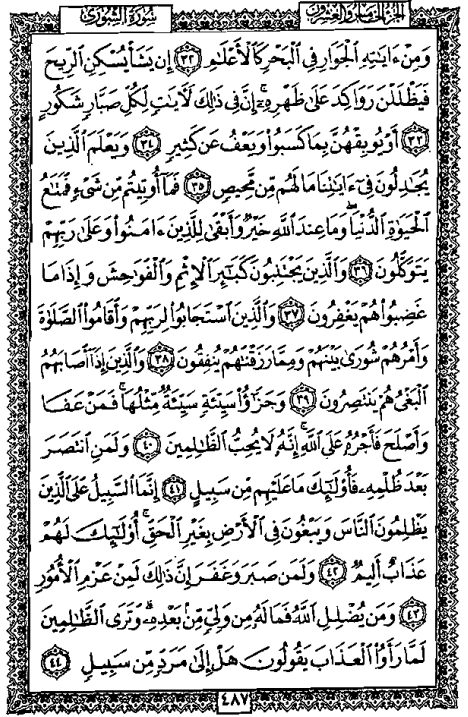 الجزء الخامس والعشرون
سُورَةُ الشُّورَىٰ
وَمِنْ ءَايَٰتِهِ ٱلْجَوَارِ فِى ٱلْبَحْرِ كَٱلْأَعْلَٰمِ ٣٢ إِن يَشَأْ يُسْكِنِ ٱلرِّيحَ
فَيَظْلَلْنَ رَوَاكِدَ عَلَىٰ ظَهْرِهِۦٓ إِنَّ فِى ذَٰلِكَ لَءَايَٰتٍ لِّكُلِّ صَبَّارٍ شَكُورٍ
٣٣ أَوْ يُوبِقْهُنَّ بِمَا كَسَبُوا۟ وَيَعْفُ عَن كَثِيرٍ ٣٤ وَيَعْلَمَ ٱلَّذِينَ
يُجَٰدِلُونَ فِىٓ ءَايَٰتِنَا مَا لَهُم مِّن مَّحِيصٍ ٣٥ فَمَآ أُوتِيتُم مِّن شَىْءٍ فَمَتَٰعُ
ٱلْحَيَوٰةِ ٱلدُّنْيَا وَمَا عِندَ ٱللَّهِ خَيْرٌ وَأَبْقَىٰ لِلَّذِينَ ءَامَنُوا۟ وَعَلَىٰ رَبِّهِمْ
يَتَوَكَّلُونَ ٣٦ وَٱلَّذِينَ يَجْتَنِبُونَ كَبَٰٓئِرَ ٱلْإِثْمِ وَٱلْفَوَٰحِشَ وَإِذَا مَا
غَضِبُوا۟ هُمْ يَغْفِرُونَ ٣٧ وَٱلَّذِينَ ٱسْتَجَابُوا۟ لِرَبِّهِمْ وَأَقَامُوا۟ ٱلصَّلَوٰةَ
وَأَمْرُهُمْ شُورَىٰ بَيْنَهُمْ وَمِمَّا رَزَقْنَٰهُمْ يُنفِقُونَ ٣٨ وَٱلَّذِينَ إِذَآ أَصَابَهُمُ
ٱلْبَغْىُ هُمْ يَنتَصِرُونَ ٣٩ وَجَزَٰٓؤُا۟ سَيِّئَةٍ سَيِّئَةٌ مِّثْلُهَا فَمَنْ عَفَا
وَأَصْلَحَ فَأَجْرُهُۥ عَلَى ٱللَّهِ إِنَّهُۥ لَا يُحِبُّ ٱلظَّٰلِمِينَ ٤٠ وَلَمَنِ ٱنتَصَرَ
بَعْدَ ظُلْمِهِۦ فَأُو۟لَٰٓئِكَ مَا عَلَيْهِم مِّن سَبِيلٍ ٤١ إِنَّمَا ٱلسَّبِيلُ عَلَى ٱلَّذِينَ
يَظْلِمُونَ ٱلنَّاسَ وَيَبْغُونَ فِى ٱلْأَرْضِ بِغَيْرِ ٱلْحَقِّ أُو۟لَٰٓئِكَ لَهُمْ
عَذَابٌ أَلِيمٌ ٤٢ وَلَمَن صَبَرَ وَغَفَرَ إِنَّ ذَٰلِكَ لَمِنْ عَزْمِ ٱلْأُمُورِ
٤٣ وَمَن يُضْلِلِ ٱللَّهُ فَمَا لَهُۥ مِن وَلِىٍّ مِّنۢ بَعْدِهِۦ وَتَرَى ٱلظَّٰلِمِينَ
لَمَّا رَأَوُا۟ ٱلْعَذَابَ يَقُولُونَ هَلْ إِلَىٰ مَرَدٍّ مِّن سَبِيلٍ ٤٤
٤٨٧